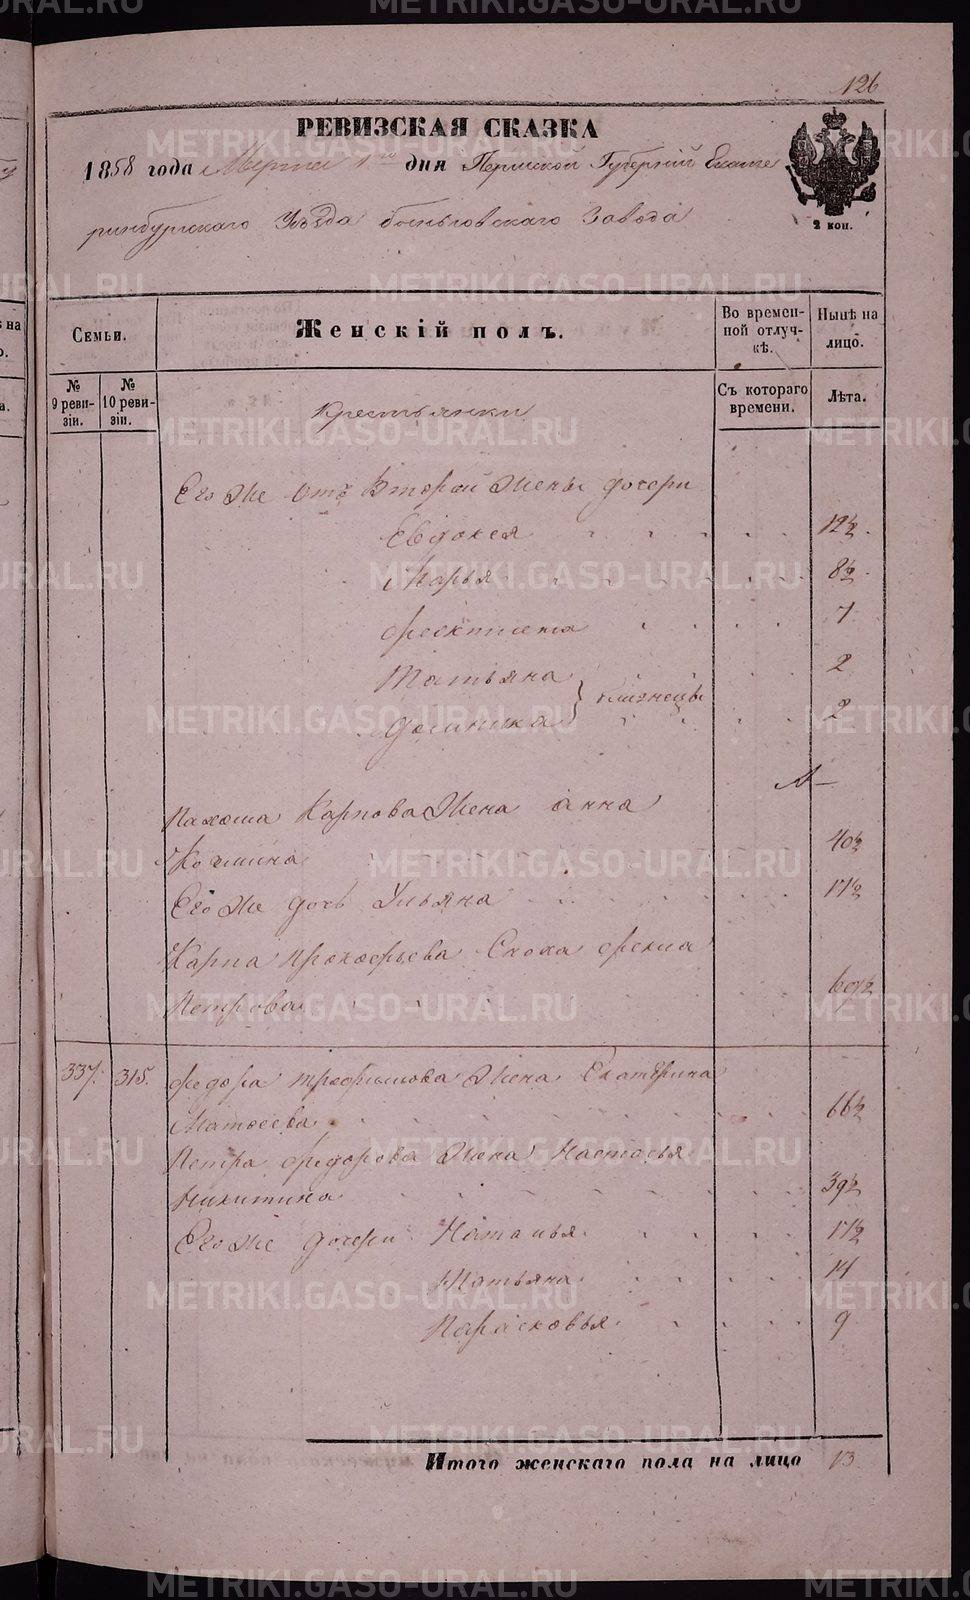 126
РЕВИЗСКАЯ СКАЗКА
1858 года Марта 1го дня Пермской Губерній Екате
ринбургскаго Уѣзда бынговскаго Завода
2 коп.
Семьи.
Женскій полъ.
Во времен-
ной отлуч-
кѣ.
Нынѣ на
лицо.
№
9 реви-
зіи.
№
10 реви-
зіи.
Съ котораго
времени.
Лѣта.
Крестьянки
Его же отъ второй жены дочери
Евдокея 12½
Марья 8½
Феоктиста 7
Татьяна 2
близнецы
2
Карпова жена анна
40½
Его же дочь Ульяна 17½
Карпа прокофьева Сноха фекла
Петрова 60½
337. 315. федора трофимова жена Екатерина
Матвеева 66½
Петра федорова жена Настасья
Никитина 39½
Его же дочери Наталья 17½
Татьяна 14
Парасковья 9
Итого женскаго пола на лицо 13
METRIKI.GASO-URAL.RU